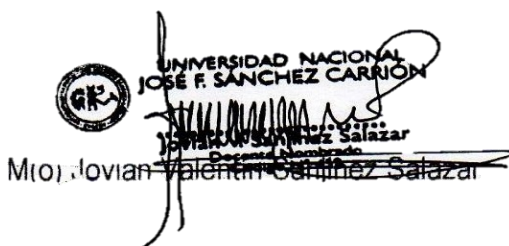 UNIVERSIDAD NACIONAL
JOSÉ F. SANCHEZ CARRIÓN
Jovian V. Sanjinez Salazar
Docente Nombrado
M(o). Jovian Valentin Sanjinez Salazar